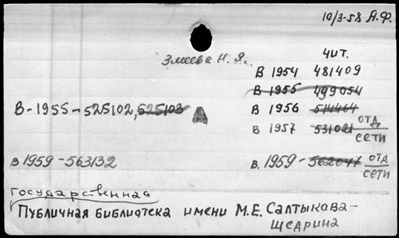 10/3-58 А.Ф.
Змеева Н. Я.
чит.
В 1954 481409
В 1955 499054
В-1955-525102, 525103
В 1956 514464
В 1957 531021 отд сети
В 1959-563132
В. 1959- 562047 отд сети
Государственная
Публичная библиотека имени М.Е. Салтыкова-
Щедрина